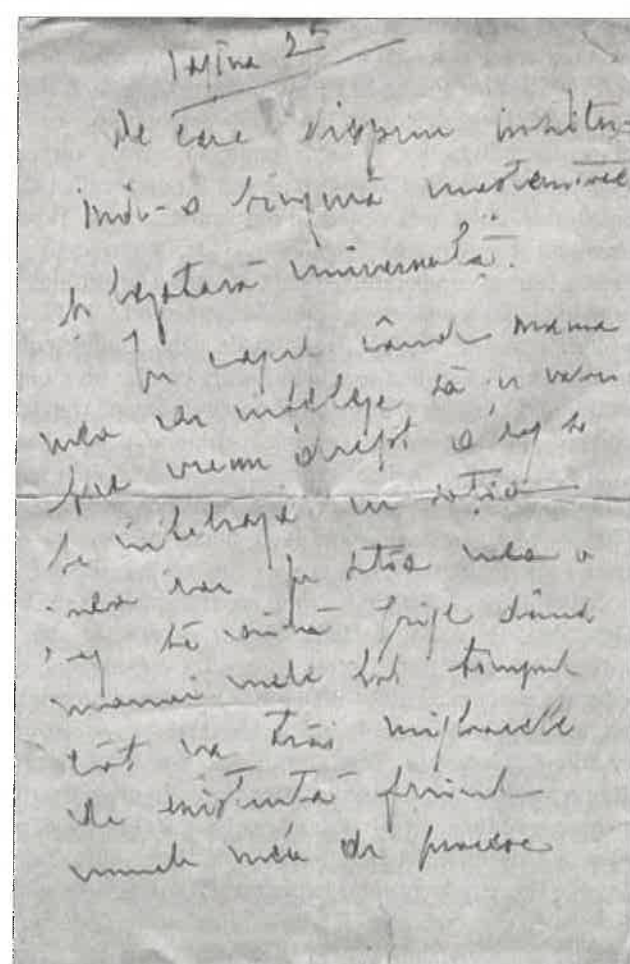 Pagina 2ª
de care dispun instituin-
du-o singură moștenitoare
și legatară universală.
In cazul când mama
mea ar înțelege să
vreun drept o rog să
se înțeleagă cu soția
mea iar pe soția mea o
rog să aibă grije dând
mamei mele tot timpul
cât va trăi mijloacele
de existență fiind
unele mele de